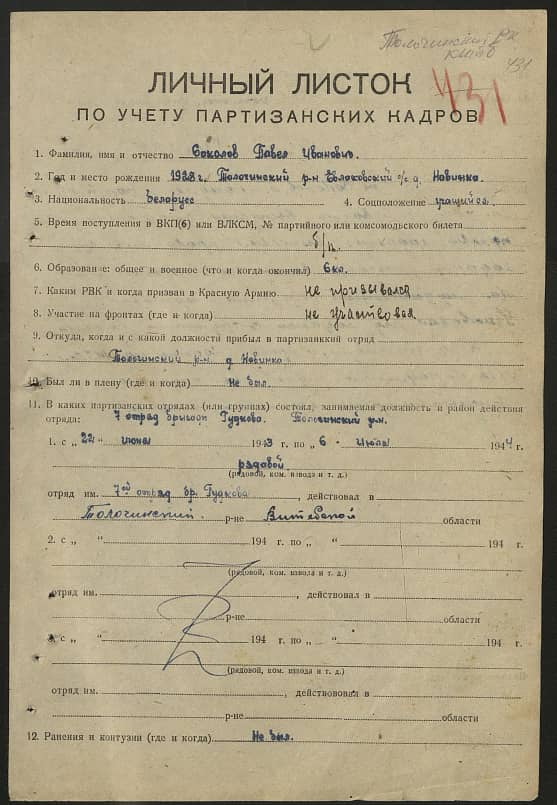 Толочинский РК
КПбБ
431
431
ЛИЧНЫЙ ЛИСТОК
ПО УЧЕТУ ПАРТИЗАНСКИХ КАДРОВ
1. Фамилия, имя и отчество Соколов Павел Иванович.
2. Год и место рождения 1928 г. Толочинский р-н с/с д. Новинка.
3. Национальность Белорус 4. Соцположение учащийся.
5. Время поступления в ВКП(б) или ВЛКСМ, № партийного или комсомольского билета
б/п.
6. Образование: общее и военное (что и когда окончил) 6 кл.
7. Каким РВК и когда призван в Красную Армию не призывался
8. Участие на фронтах (где и когда) не участвовал
9. Откуда, когда и с какой должности прибыл в партизанский отряд
Толочинский р-н д. Новинка
10. Был ли в плену (где и когда) Не был.
11. В каких партизанских отрядах (или группах) состоял, занимаемая должность и район действия
отряда: 7 отряд бригады Гудкова. Толочинский р-н.
1. с „ 22 “ июня 1943 г. по „ 6 “ июля 1944 г.
рядовой
(рядовой, ком. взвода и т. д.)
отряд им. 7ой отряд бр. Гудкова, действовал в
Толочинский р-не Витебской области
2. с „ “ 194 г. по „ “ 194 г.
(рядовой, ком. взвода и т. д.)
отряд им. , действовал в
р-не области
3. с „ “ 194 г. по „ “ 194 г.
(рядовой, ком. взвода и т. д.)
отряд им. , действововал в
р-не области
12. Ранения и контузии (где и когда) Не был.